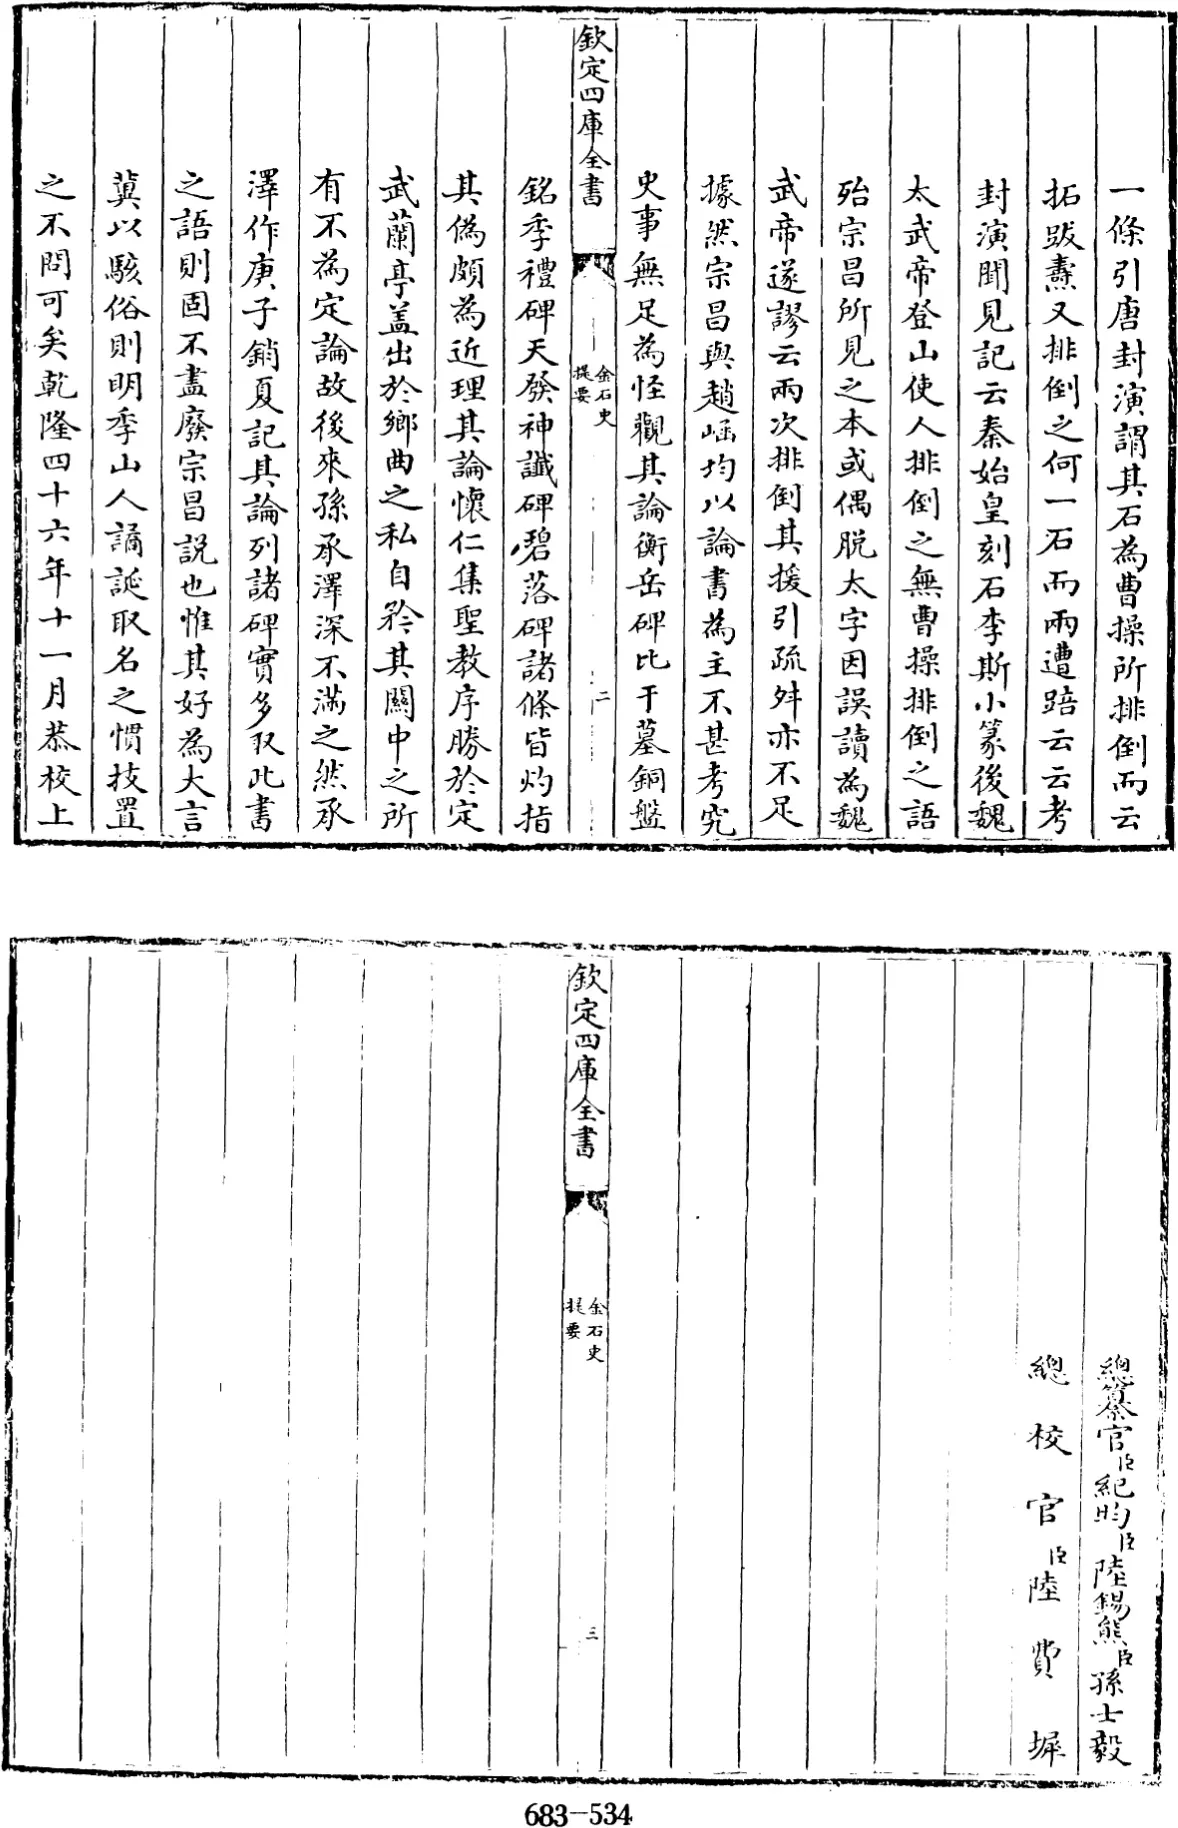 一條引唐封演謂其石為曹操所排倒而云
拓跋燾又排倒之何一石而兩遭踣云云考
封演聞見記云秦始皇刻石李斯小篆後魏
太武帝登山使人排倒之無曹操排倒之語
殆宗昌所見之本或偶脱太字因誤讀為魏
武帝遂謬云兩次排倒其援引疏舛亦不足
據然宗昌與趙崡均以論書為主不甚考究
史事無足為怪觀其論衡岳碑比干墓銅盤
欽定四庫全書
金石史
提要
二
銘季禮碑天發神讖碑碧落碑諸條皆灼指
其偽頗為近理其論懷仁集聖教序勝於定
武蘭亭盖出於鄉曲之私自矜其關中之所
有不為定論故後來孫承澤深不滿之然承
澤作庚子銷夏記其論列諸碑實多取此書
之語則固不盡廢宗昌説也惟其好為大言
冀以駭俗則明季山人譎誕取名之慣技置
之不問可矣乾隆四十六年十一月恭校上
總纂官臣紀昀臣陸錫熊臣孫士毅
總校官臣陸費墀
欽定四庫全書
金石史
提要
三
683-534